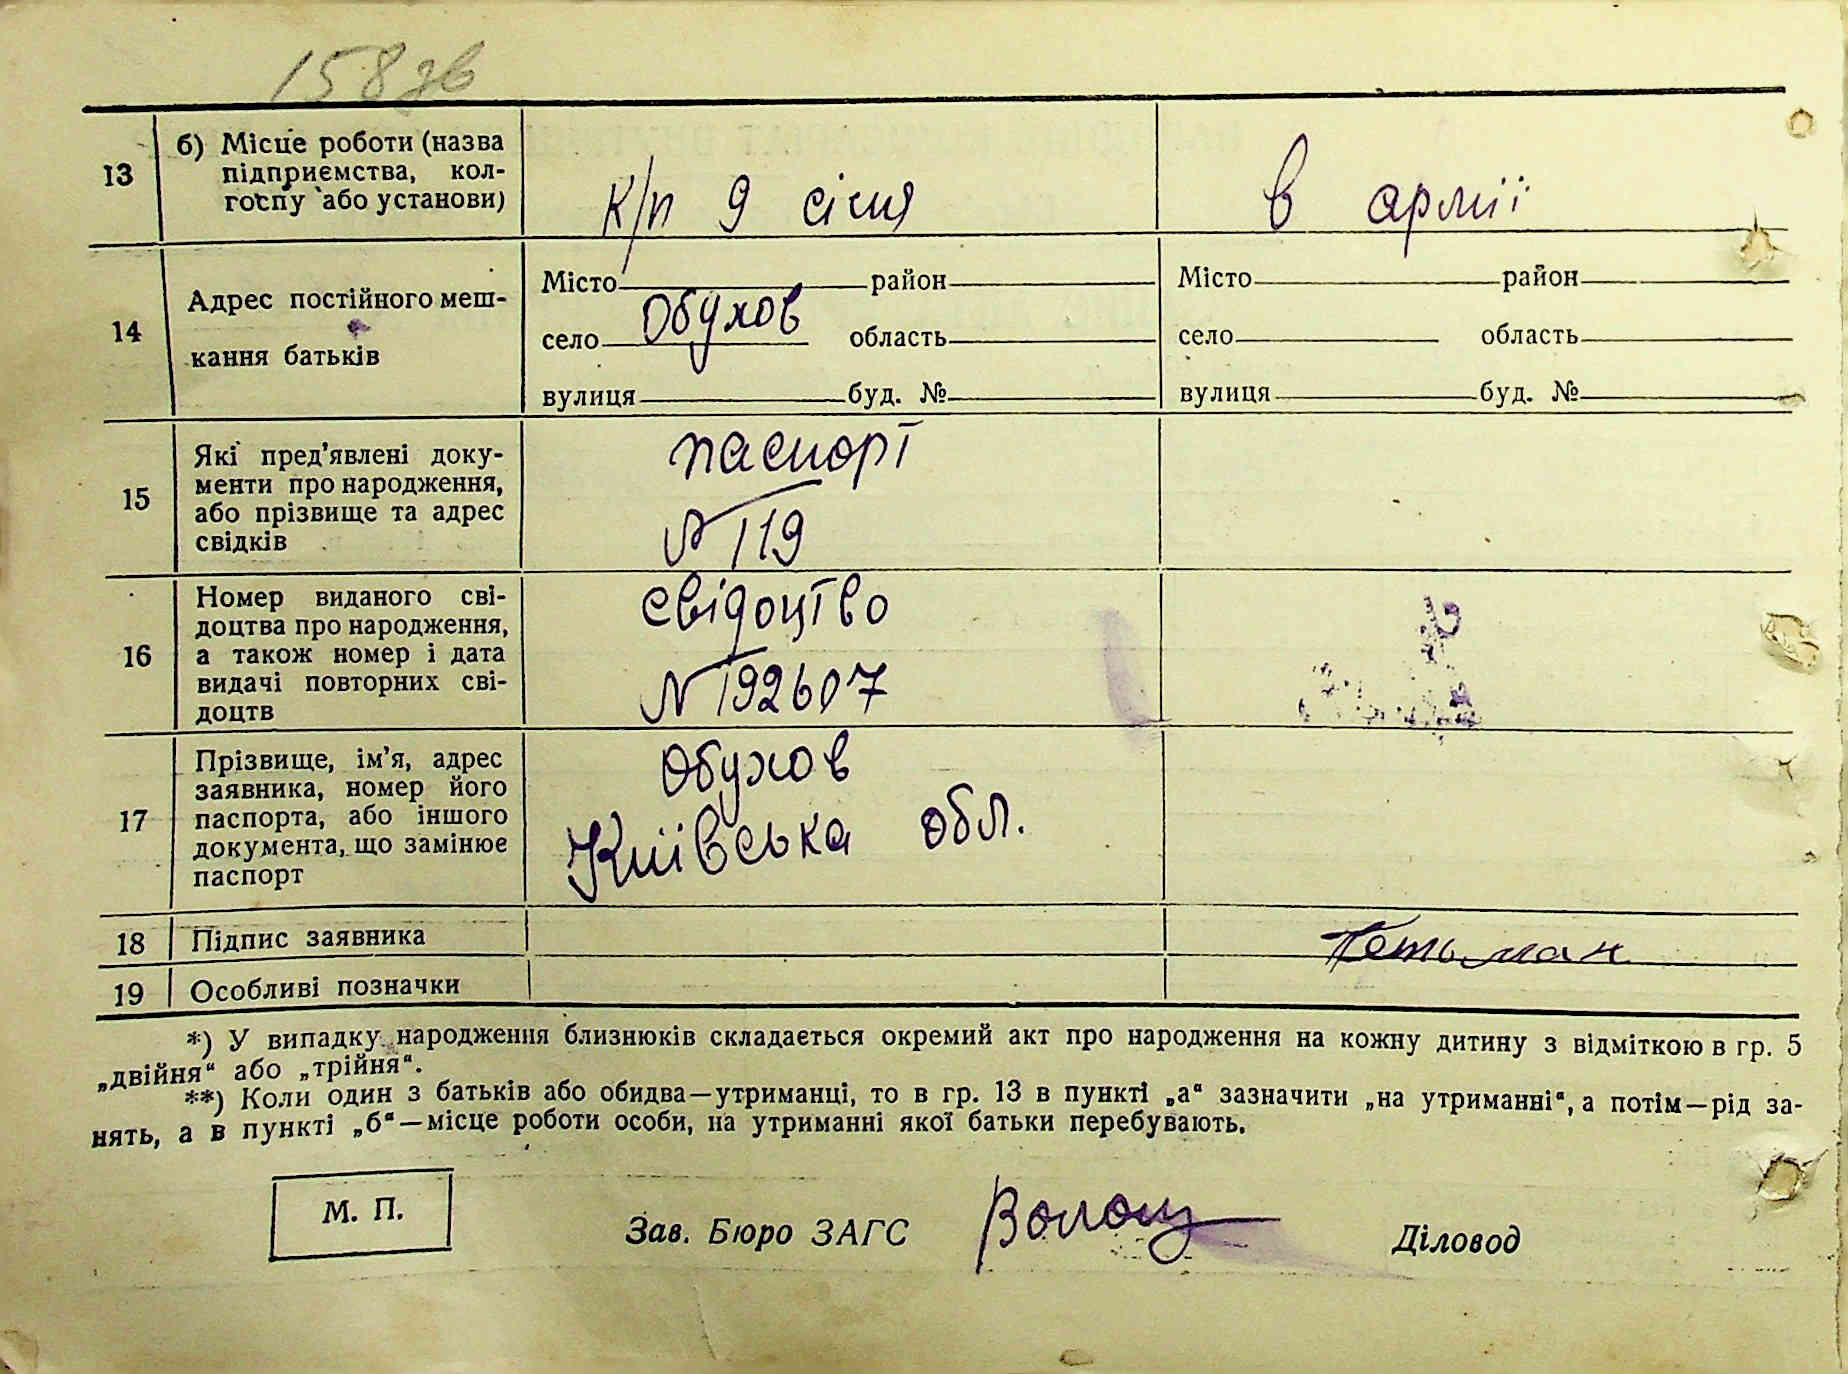 158зв
13 б) Місце роботи (назва
підприємства, кол-
госпу або установи)
к/п 9 січня
в армії
14 Адрес постійного меш-
кання батьків
Місто район
село Обухов область
вулиця буд. №
Місто район
село область
вулиця буд. №
15 Які пред'явлені доку-
менти про народження,
або прізвище та адрес
свідків
паспорт
№ 119
16 Номер виданого сві-
доцтва про народження,
а також номер і дата
видачі повторних сві-
доцтв
свідоцтво
№ 192607
17 Прізвище, ім'я, адрес
заявника, номер його
паспорта, або іншого
документа, що замінює
паспорт
Обухов
Київська обл.
18 Підпис заявника
Гетьман
19 Особливі позначки
*) У випадку народження близнюків складається окремий акт про народження на кожну дитину з відміткою в гр. 5
„двійня“ або „трійня“.
**) Коли один з батьків або обидва—утриманці, то в гр. 13 в пункті „а“ зазначити „на утриманні“, а потім—рід за-
нять, а в пункті „б“—місце роботи особи, на утриманні якої батьки перебувають.
М. П.
Зав. Бюро ЗАГС
Волощ
Діловод